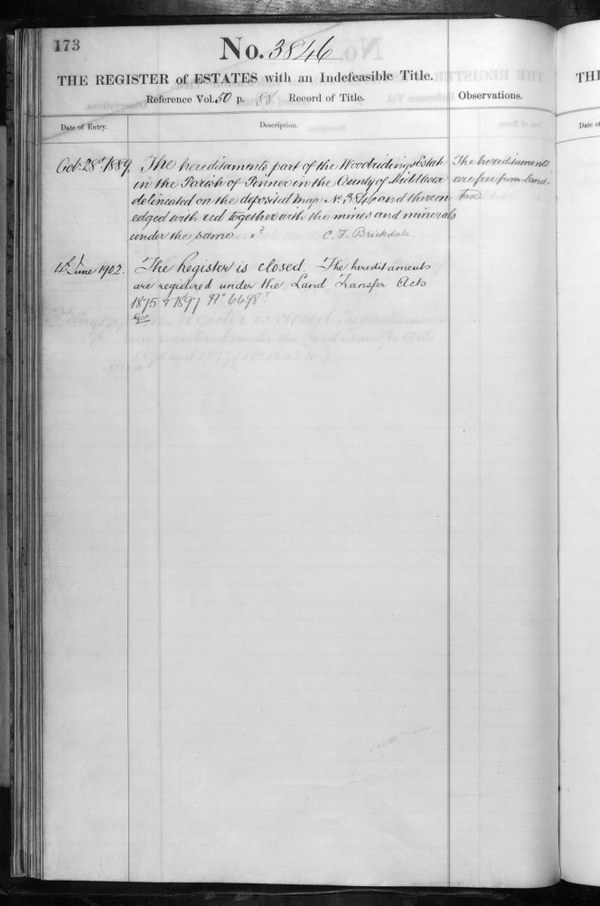 173
No. 3846
THE REGISTER of ESTATES with an Indefeasible Title.
Reference Vol. 50 p. 88 Record of Title.
Observations.
Date of Entry.
Description.
Oct. 28th 1889.
The hereditaments part of the Woodridings Estate
in the Parish of Pinner in the County of Middlesex
delineated on the deposited map No. 3846 and thereon
edged with red together with the mines and minerals
under the same
C. F. Brickdale.
The hereditaments
are free from Land-
Tax
4th June 1902.
The Register is closed. The hereditaments
are registered under the Land Transfer Acts
1875 & 1897 No 6698
THE
Date of